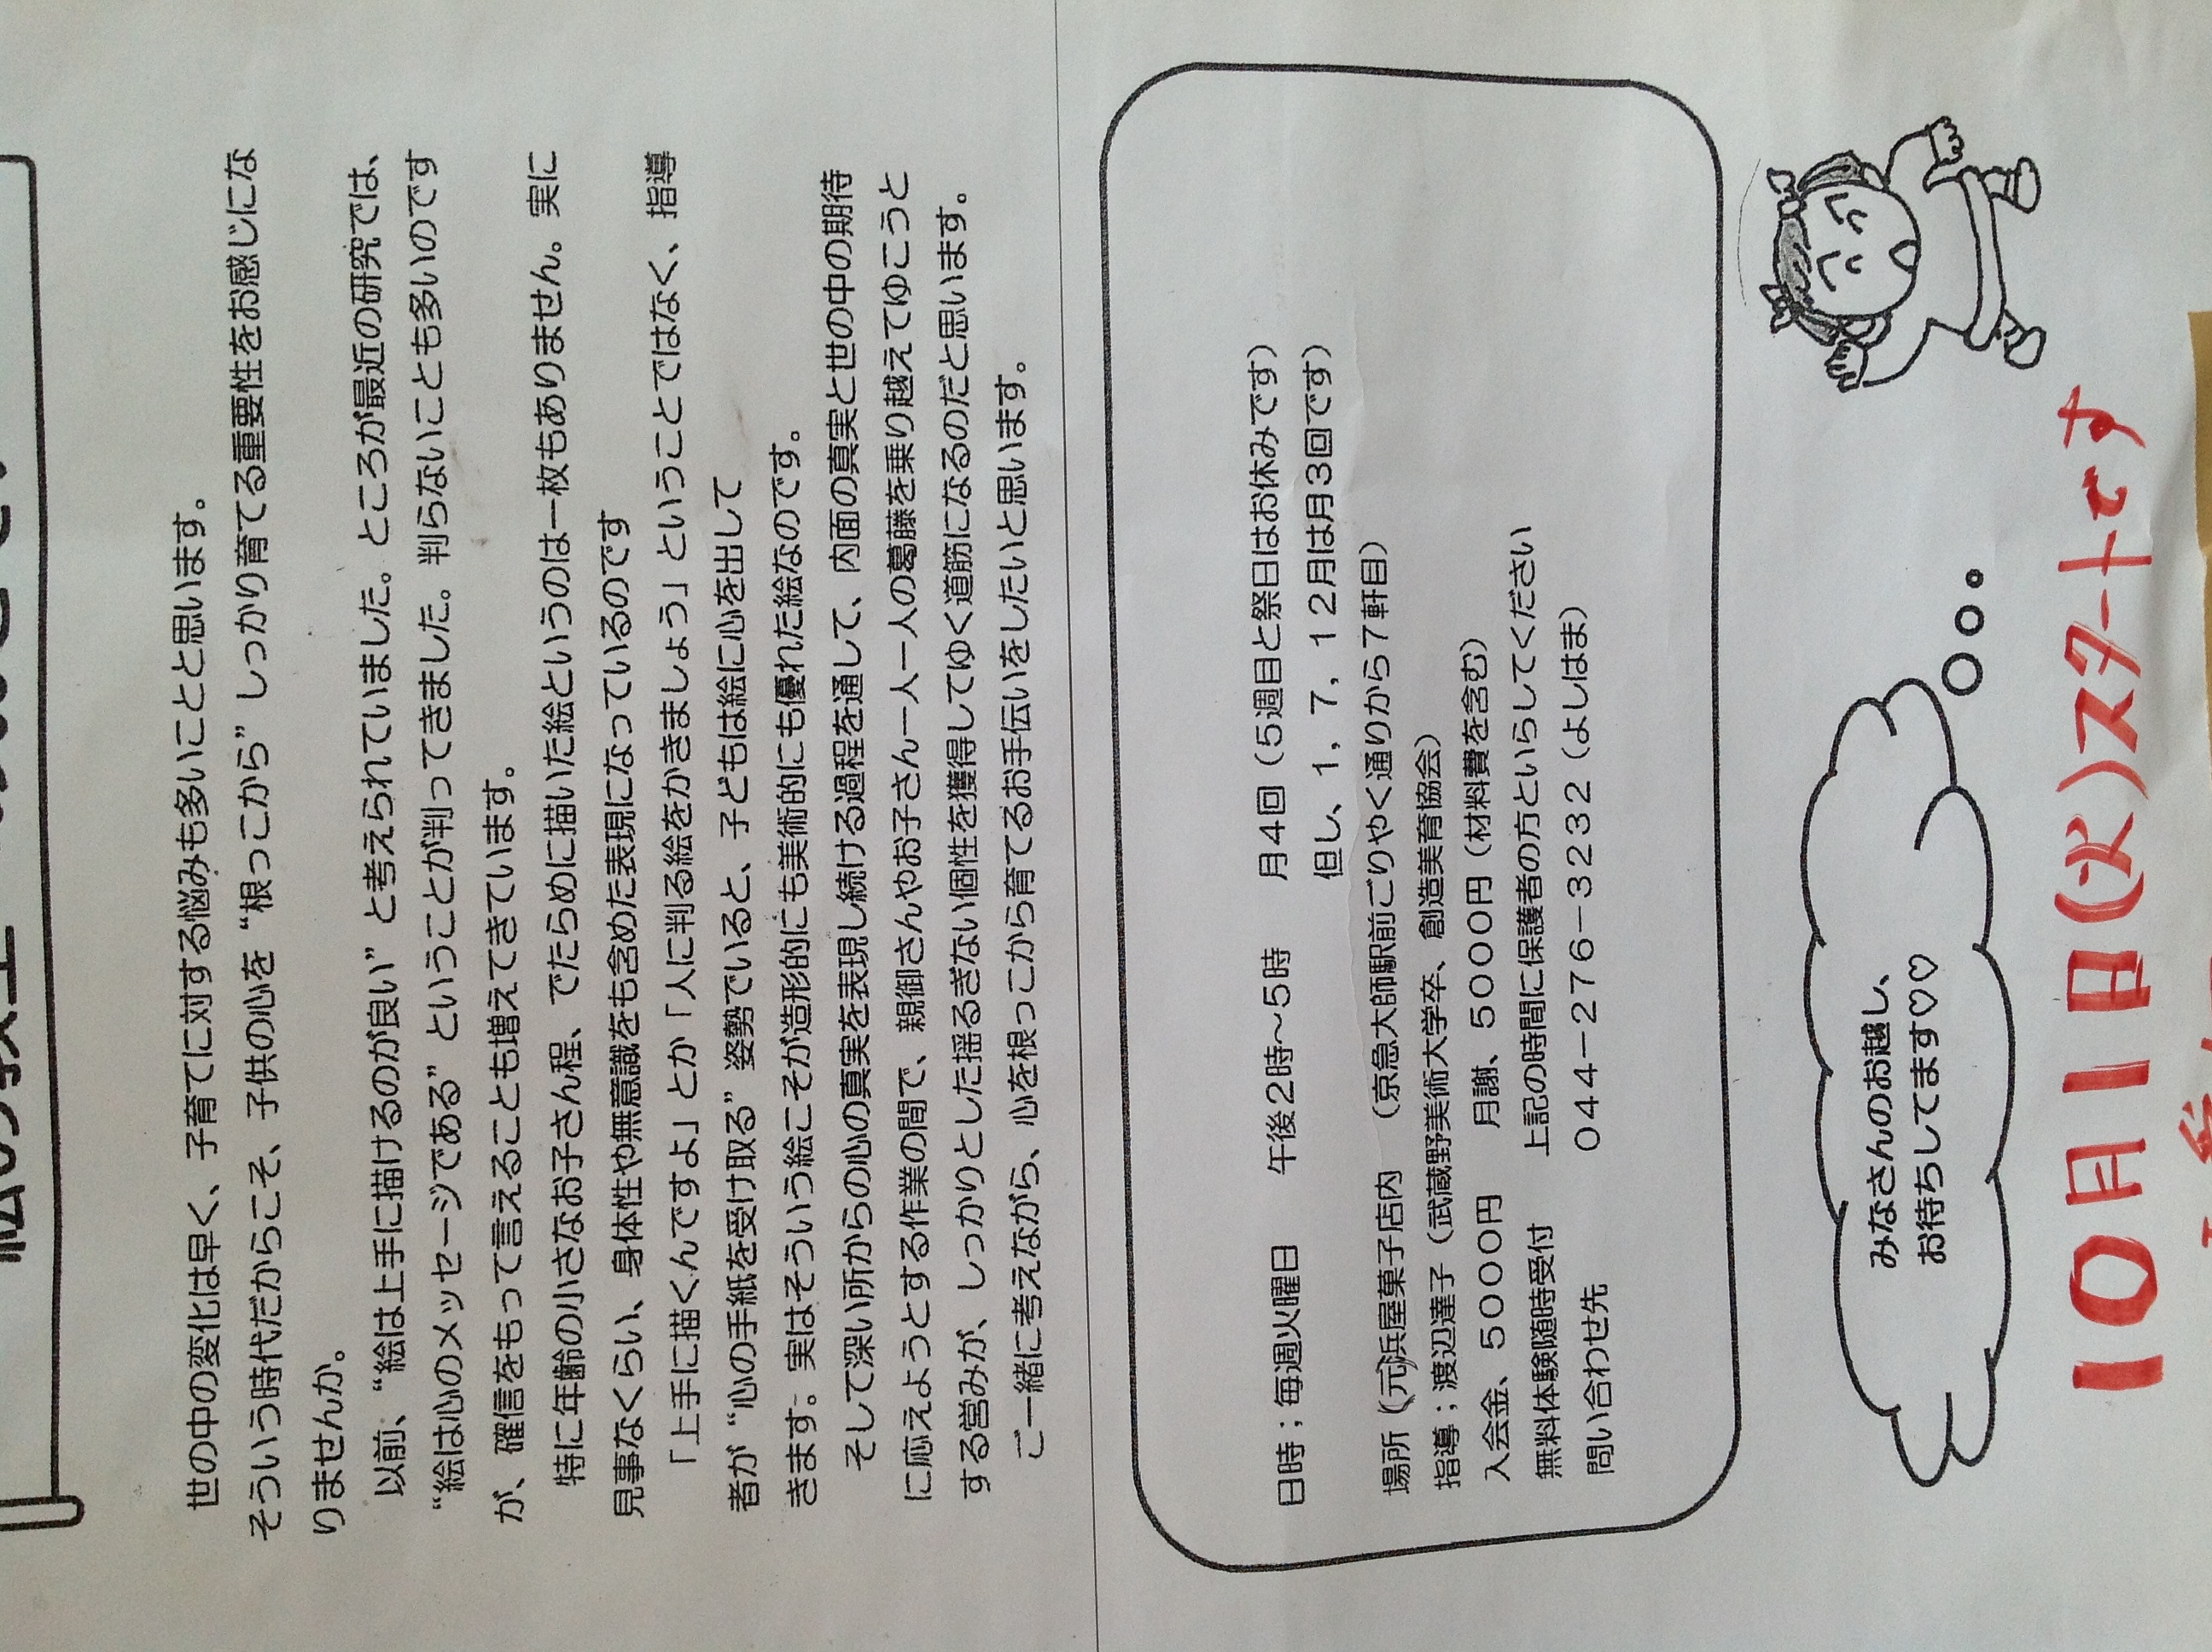 世の中の変化は早く、子育てに対する悩みも多いことと思います。
そういう時代だからこそ、子供の心を“根っこから”しっかり育てる重要性をお感じにな
りませんか。
以前、“絵は上手に描けるのが良い”と考えられていました。ところが最近の研究では、
“絵は心のメッセージである”ということが判ってきました。判らないことも多いのです
が、確信をもって言えることも増えてきています。
特に年齢の小さなお子さん程、でたらめに描いた絵というのは一枚もありません。実に
見事なくらい、身体性や無意識をも含めた表現になっているのです
「上手に描くんですよ」とか「人に判る絵をかきましょう」ということではなく、指導
者が“心の手紙を受け取る”姿勢でいると、子どもは絵に心を出して
きます。実はそういう絵こそが造形的にも美術的にも優れた絵なのです。
そして深い所からの心の真実を表現し続ける過程を通して、内面の真実と世の中の期待
に応えようとする作業の間で、親御さんやお子さん一人一人の葛藤を乗り越えてゆこうと
する営みが、しっかりとした揺るぎない個性を獲得してゆく道筋になるのだと思います。
ご一緒に考えながら、心を根っこから育てるお手伝いをしたいと思います。
日時；毎週火曜日　午後２時～５時　月４回（５週目と祭日はお休みです）
但し、１，７，１２月は月３回です）
場所（元）浜屋菓子店内　（京急大師駅前ごりやく通りから７軒目）
指導；渡辺達子（武蔵野美術大学卒、創造美育協会）
入会金、５０００円　月謝、５０００円（材料費を含む）
無料体験随時受付　上記の時間に保護者の方といらしてください
問い合わせ先　０４４－２７６－３２３２（よしはま）
みなさんのお越し、
お待ちしてます♡♡
10月1日(火)スタートです